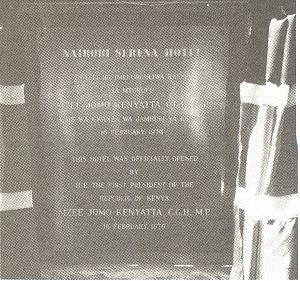 NAIROBI SERENA HOTEL
HOTELI HII IMEFUNGULIWA RASMI
NA MTUKUFU
MZEE JOMO KENYATTA, C.G.H., M.P.
WA KWANZA WA JAMHURI YA
16 FEBRUARY, 1976
THIS HOTEL WAS OFFICIALLY OPENED
BY
H.E. THE FIRST PRESIDENT OF THE
REPUBLIC OF KENYA
MZEE JOMO KENYATTA, C.G.H., M.P.
16 FEBRUARY, 1976